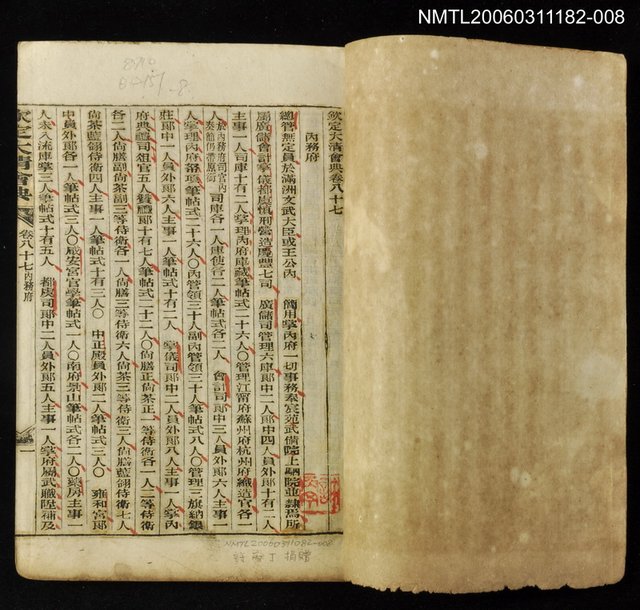 NMTL20060311182-008
欽定大清會典卷八十七
內務府
總管無定員於滿洲文武大臣或王公內 簡用掌內府一切事務奉宸苑武備院上駟院並隸焉所
屬廣儲會計掌儀都虞慎刑營造慶豐七司 廣儲司管理六庫郎中二人郎中四人員外郎十有二人
主事一人司庫十有二人掌理內府庫藏筆帖式二十六人〇管理江甯府蘇州府杭州府織造官各一
人於內務府司官內奏簡仍帶原銜司庫各一人庫使各二人筆帖式各二人 會計司郎中三人員外郎六人主事一
人掌理內府帑項筆帖式二十六人〇內管領三十人副內管領三十人筆帖式八人〇管理三旗納銀
莊郎中一人員外郎六人主事一人筆帖式十有二人 掌儀司郎中二人員外郎八人主事一人掌內
府典禮司俎官五人贊禮郎十有七人筆帖式二十二人〇尚膳正尚茶正一等侍衛各一人二等侍衛
各二人尚膳副尚茶副三等侍衛各一人尚膳三等侍衛六人尚茶三等侍衛三人尚膳藍翎侍衛七人
尚茶藍翎侍衛四人主事一人筆帖式十有三人〇 中正殿員外郎二人筆帖式三人〇 雍和宮郎
中員外郎各一人筆帖式三人〇咸安宮官學筆帖式一人〇南府景山筆帖式各二人〇藥房主事一
人未入流庫掌三人筆帖式十有五人 都虞司郎中二人員外郎五人主事一人掌府屬武職陞補及
欽定大清會典 卷八十七內務府 一
NMTL20060311182-008
捐贈